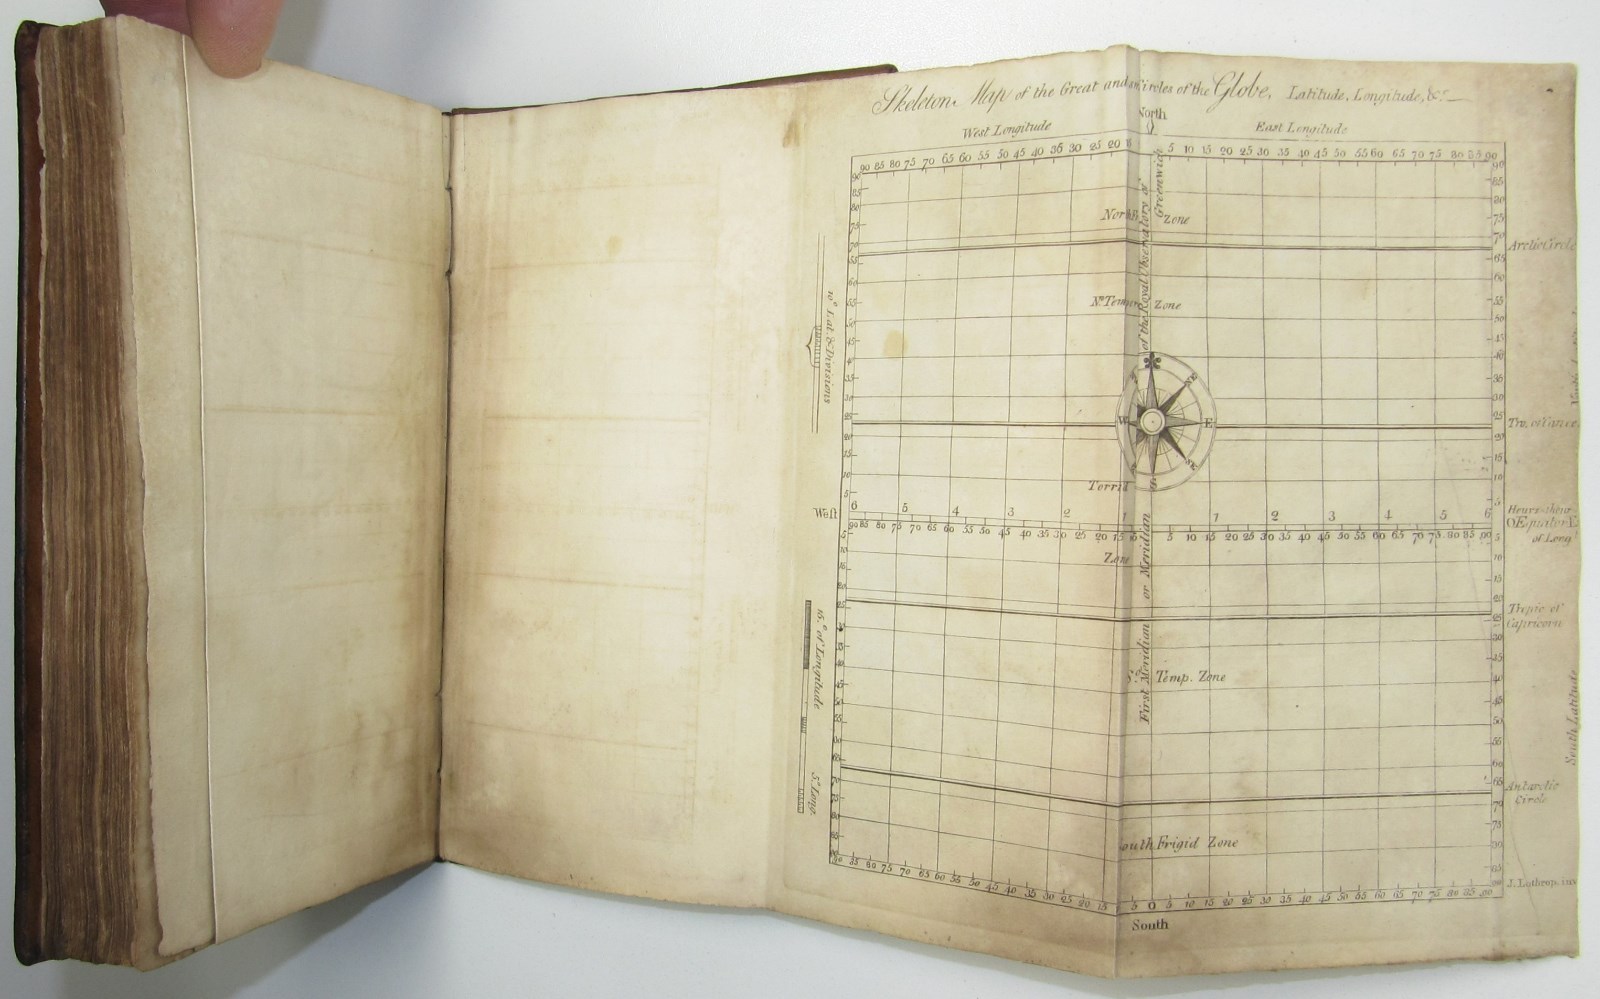 Skeleton Map of the Great and Circles of the Globe, Latitude, Longitude, &c.
North
West Longitude East Longitude
90 85 80 75 70 65 60 55 50 45 40 35 30 25 20 5 10 15 20 25 30 35 40 45 50 55 60 65 70 75 80 85 90
of the Royal Observatory of Greenwich
Zone
Arctic Circle
Zone
10° Lat. & Divisions
W E
Torrid
West
6 5 4 3 2 1 1 2 3 4 5 6
90 85 80 75 70 65 60 55 50 45 40 35 30 25 20 15 5 10 15 20 25 30 35 40 45 50 55 60 65 70 75 80 85 90
of Long
Zone
First Meridian or Meridian
Tropic of
Capricorn
15° of Longitude
So. Temp. Zone
South Latitude
5° Long
Antarctic
Circle
outh Frigid Zone
J. Lathrop. inv
85 80 75 70 65 60 55 50 45 40 35 30 25 20 15 5 0 5 10 15 20 25 30 35 40 45 50 55 60 65 70 75 80 85 90
South